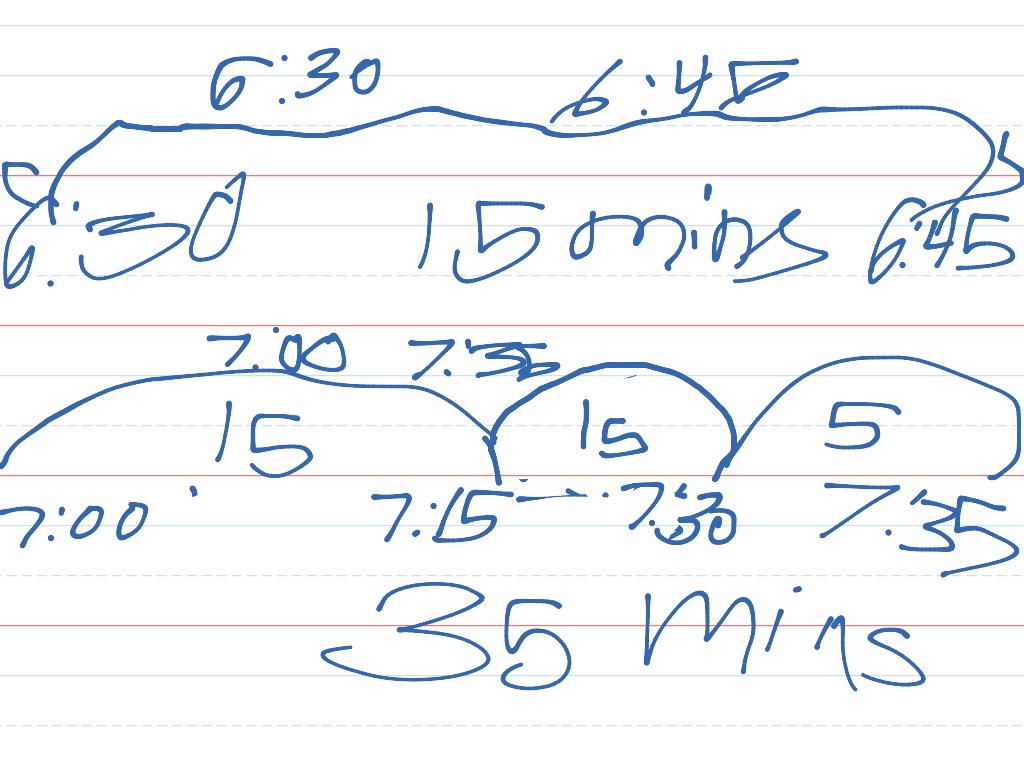 6:30 6:45
6:30 15 mins 6:45
7:00 7:35
15 15 5
7:00 7:15 7:30 7:35
35 Mins